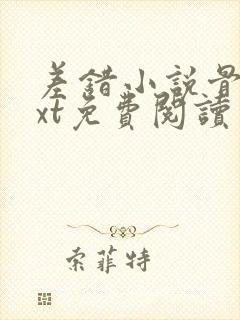 差錯小説骨
xt免費閱讀
索菲特